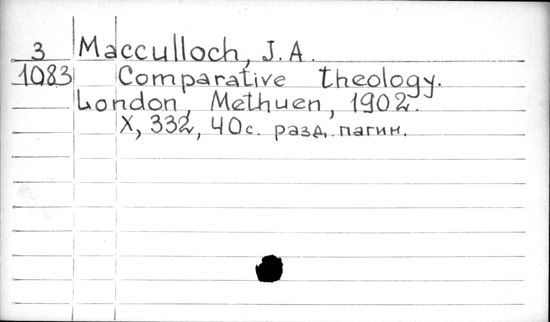 3 Macculloch, J. A.
1083 Comparative theology.
London, Methuen, 1902.
X, 332, 40 с. разд. пагин.